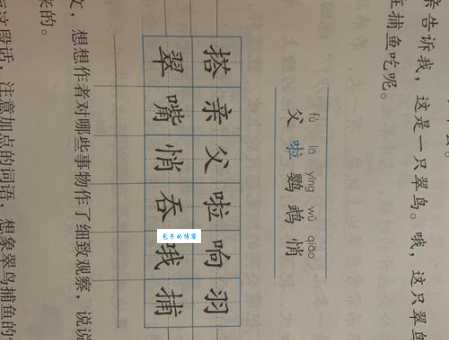 亲告诉我，这是一只翠鸟。哦，这只翠鸟
捕鱼吃呢。
fù la yīng wǔ qiāo
父 啦 鹦 鹉 悄
搭 亲 父 啦 响 羽
翠 嘴 悄 吞 哦 捕
文，想想作者对哪些事物作了细致观察，说说
来的。
这段话，注意加点的词语，想象翠鸟捕鱼的